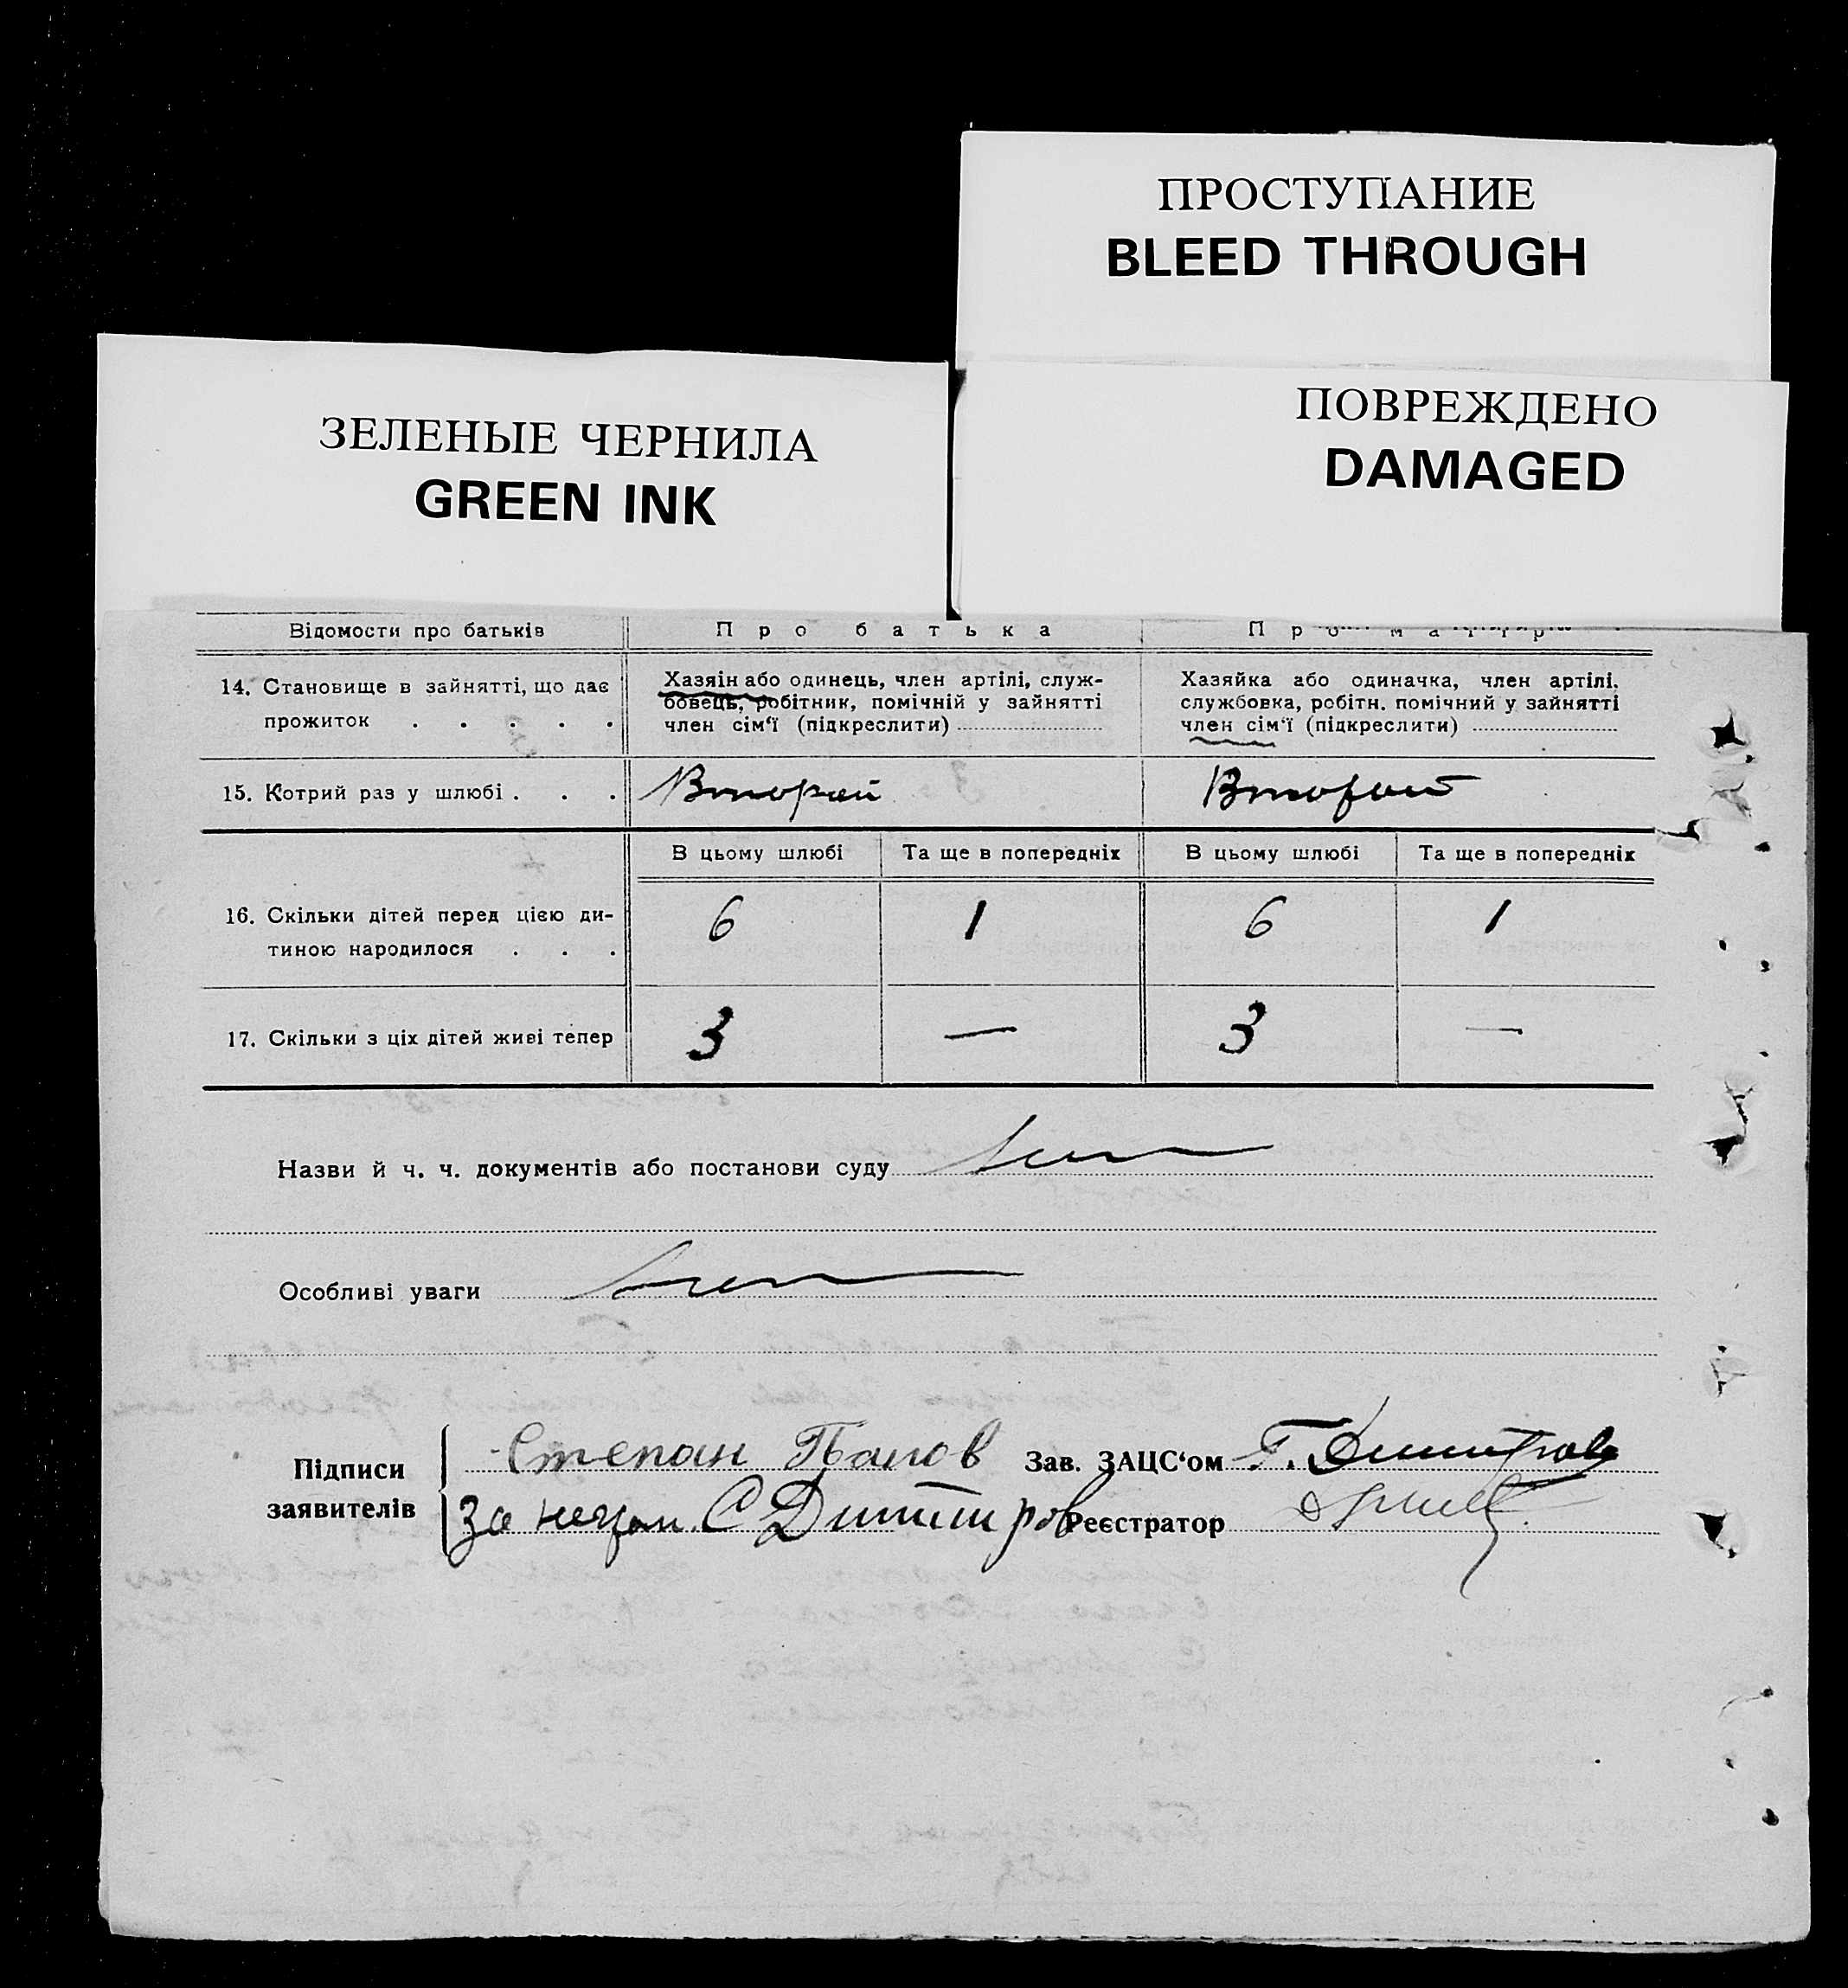 ПРОСТУПАНИЕ
BLEED THROUGH
ПОВРЕЖДЕНО
DAMAGED
ЗЕЛЕНЫЕ ЧЕРНИЛА
GREEN INK
Відомости про батьків Про батька Про матір
14. Становище в зайнятті, що дає прожиток . . . . .
Хазяін або одинець, член артілі, служ-
бовець, робітник, помічній у зайнятті
член сім‘ї (підкреслити)
Хазяйка або одиначка, член артілі,
службовка, робітн. помічний у зайнятті
член сім‘ї (підкреслити)
15. Котрий раз у шлюбі . . . Второй Второй
В цьому шлюбі Та ще в попередніх В цьому шлюбі Та ще в попередніх
16. Скільки дітей перед цією ди-
тиною народилося . . . 6 1 6 1
17. Скільки з ціх дітей живі тепер 3 — 3 —
Назви й ч. ч. документів або постанови суду
Особливі уваги
Підписи
заявителів
Степан Зав. ЗАЦС‘ом Г. Димитров
За С Димитров Реєстратор